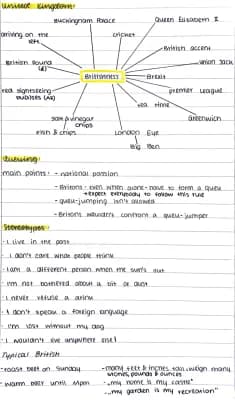 United Kingdom:
Buckingham Palace
Queen Elizabeth II
cricket
driving on the left
British accent
British Pound (£)
Union Jack
Britishness
Brexit
red sightseeing busses
Premier League
tea time
Greenwich
salt & vinegar chips
fish & chips
London Eye
Big Ben
Queuing:
main points: - national passion
- Britons - even when alone - have to form a queue
→ expect everybody to follow this rule
- queue-jumping isn't allowed
- Britons wouldn't confront a queue-jumper
Stereotypes:
- I live in the past
- I don't care what people think
- I am a different person when the sun's out
- I'm not bothered about a bit of dust
- I never refuse a drink
- I don't speak a foreign language
- I'm lost without my dog
- I wouldn't live anywhere else!
Typical British
- roast beef on Sunday
- many feet & inches tall, weigh many stones, pounds & ounces
- warm beer until 11pm
- „my home is my castle"
- „my garden is my recreation"